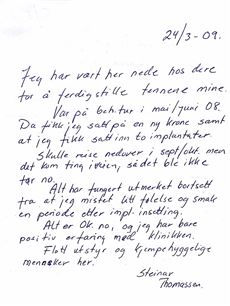 24/3-09.
Jeg har vært her nede hos dere
for å ferdigstille tennene mine.
Var på beh.tur i mai/juni 08.
Da fikk jeg satt på en ny krone samt
at jeg fikk satt inn to implantater.
Skulle reise nedover i sept/okt. men
det kom ting i veien, så det ble ikke
før nå.
Alt har fungert utmerket bortsett
fra at jeg mistet litt følelse og smak
en periode etter impl.-insetting.
Alt er OK nå, og jeg har bare
positiv erfaring med klinikken.
Flott utstyr og kjempehyggelige
mennesker her.
Steinar
Thomassen.